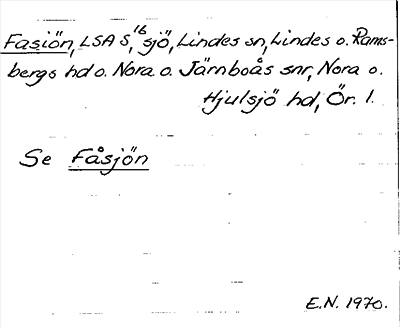 Fasiön, LSA S, 16 sjö, Lindes sn, Lindes o. Rams-
bergs hd o. Nora o. Järnboås snr, Nora o.
Hjulsjö hd, Ör. l.
Se Fåsjön
E.N. 1970.